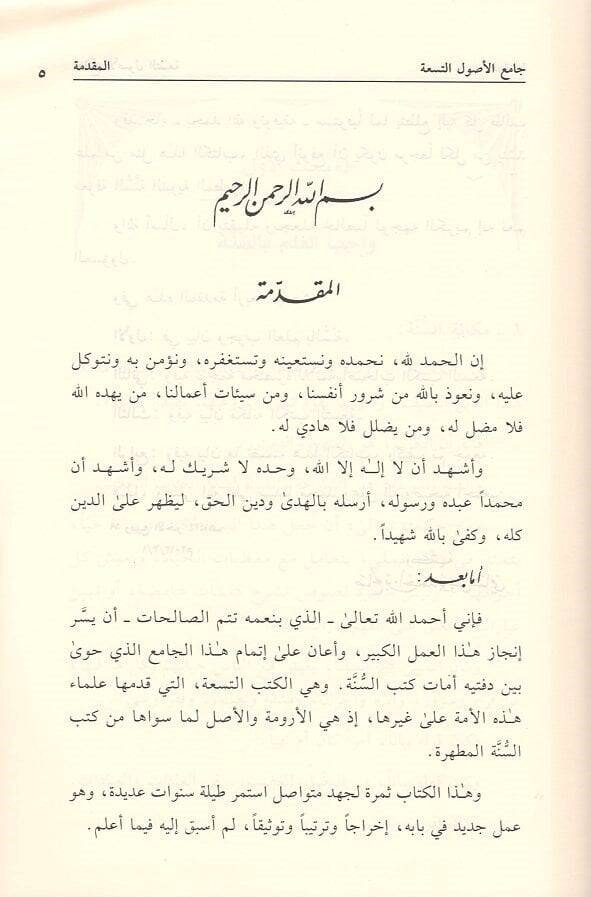 جامع الأصول التسعة المقدمة ٥
بسم الله الرحمن الرحيم
المقدّمة
إن الحمد لله، نحمده ونستعينه ونستغفره، ونؤمن به ونتوكل
عليه، ونعوذ بالله من شرور أنفسنا، ومن سيئات أعمالنا، من يهده الله
فلا مضل له، ومن يضلل فلا هادي له.
وأشهد أن لا إلٰه إلا الله، وحده لا شريك له، وأشهد أن
محمداً عبده ورسوله، أرسله بالهدىٰ ودين الحق، ليظهر علىٰ الدين
كله، وكفىٰ بالله شهيداً.
أما بعد:
فإني أحمد الله تعالىٰ ـ الذي بنعمه تتم الصالحات ـ أن يسَّر
إنجاز هٰذا العمل الكبير، وأعان علىٰ إتمام هٰذا الجامع الذي حوىٰ
بين دفتيه أمات كتب السُّنَّة. وهي الكتب التسعة، التي قدمها علماء
هٰذه الأمة علىٰ غيرها، إذ هي الأرومة والأصل لما سواها من كتب
السُّنَّة المطهرة.
وهٰذا الكتاب ثمرة لجهد متواصل استمر طيلة سنوات عديدة، وهو
عمل جديد في بابه، إخراجاً وترتيباً وتوثيقاً، لم أسبق إليه فيما أعلم.